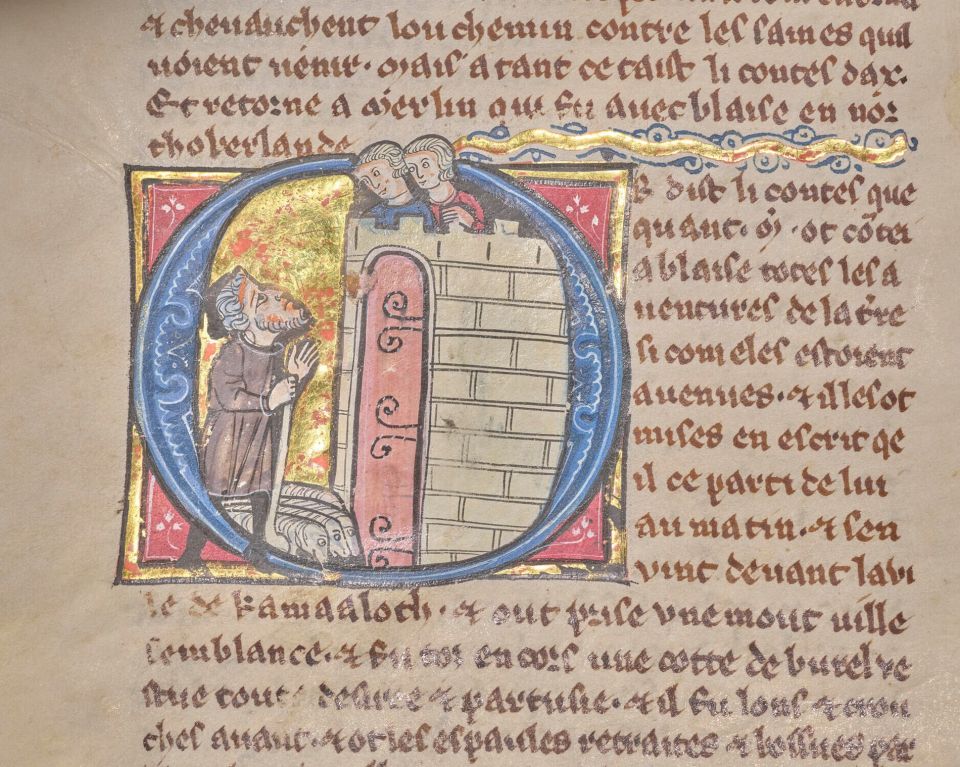 & cheuauchent lou chemin contre les saisnes quil
uoient uenir. Mais atant ce taist li contes dax.
Et retorne a Merlin qui fu auec blaise en nor
thoberlande
Or dist li contes que
quant .M. ot cōtei
a blaise totes les a
uentures de la t're
si com eles estoient
auenues. & il les ot
mises en escrit qe
il ce parti de lui
au matin. & sen
vint deuant la vi
le de kamaaloth. & out prise vne mout uille
semblance. & fu toz encors une cotte de burel ve
stue toute desiree & partuise. & il fu lons &
ches auant. & ot les espaules retraites & bossues par